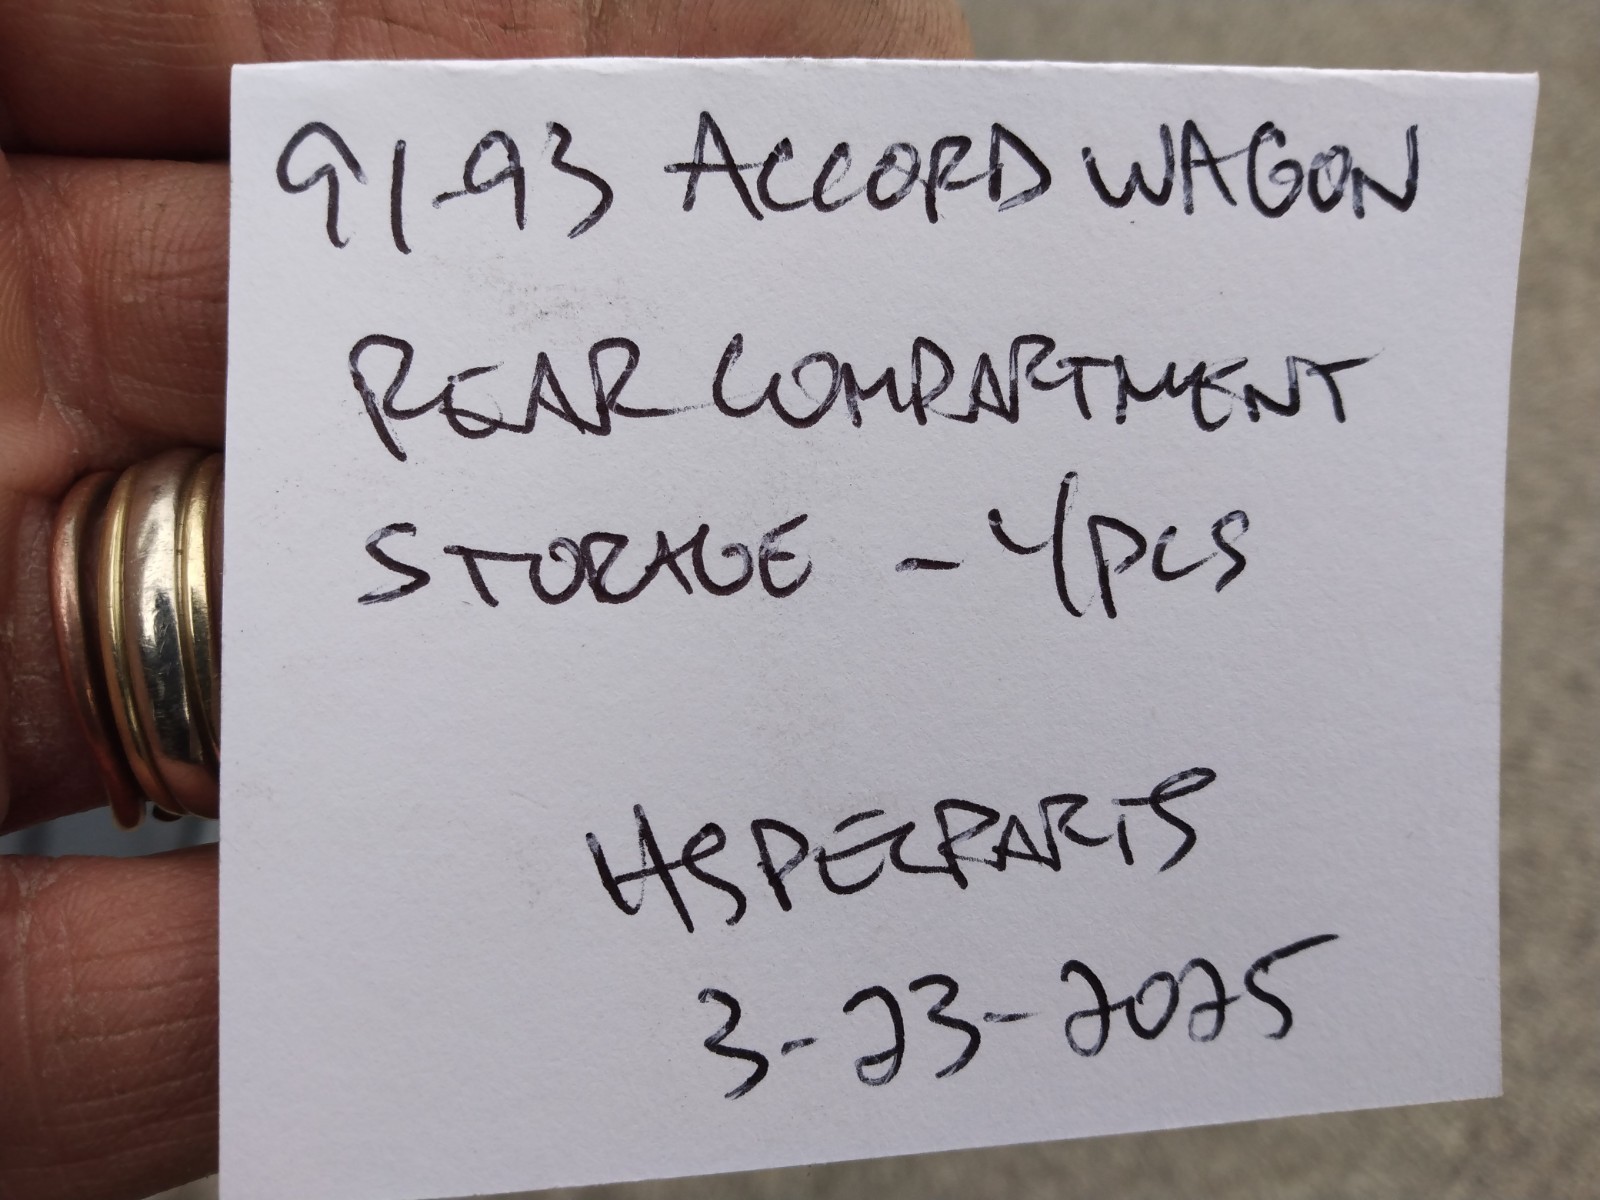 91-93 ACCORD WAGON
REAR COMPARTMENT
STORAGE - 4PCS
HSPECPARTS
3-23-2025